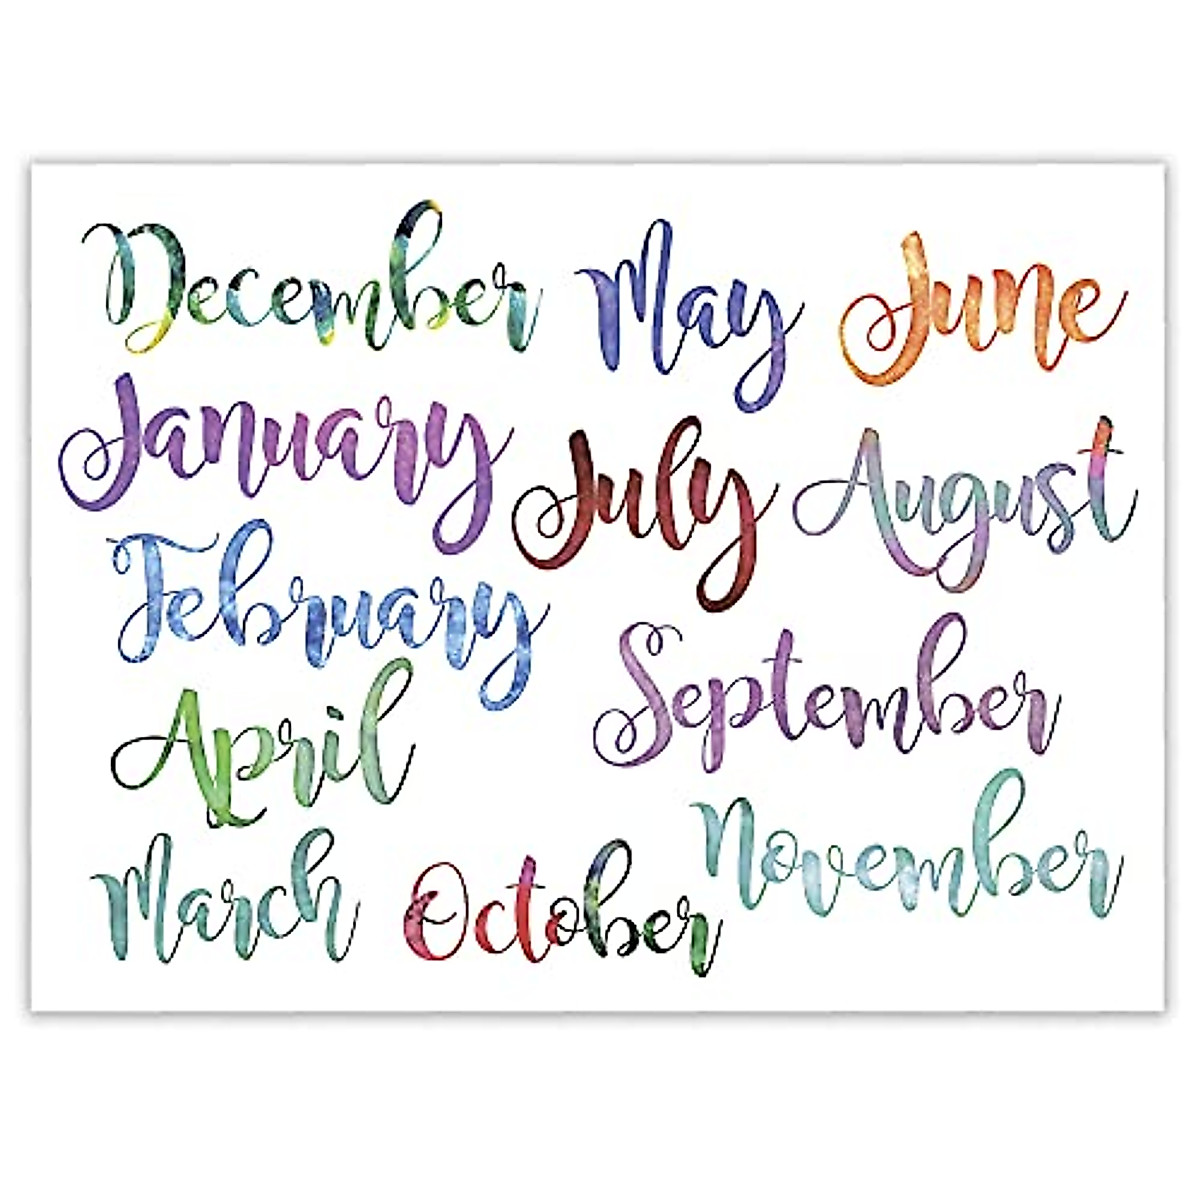 December May June
January July August
February
September
April
November
March October